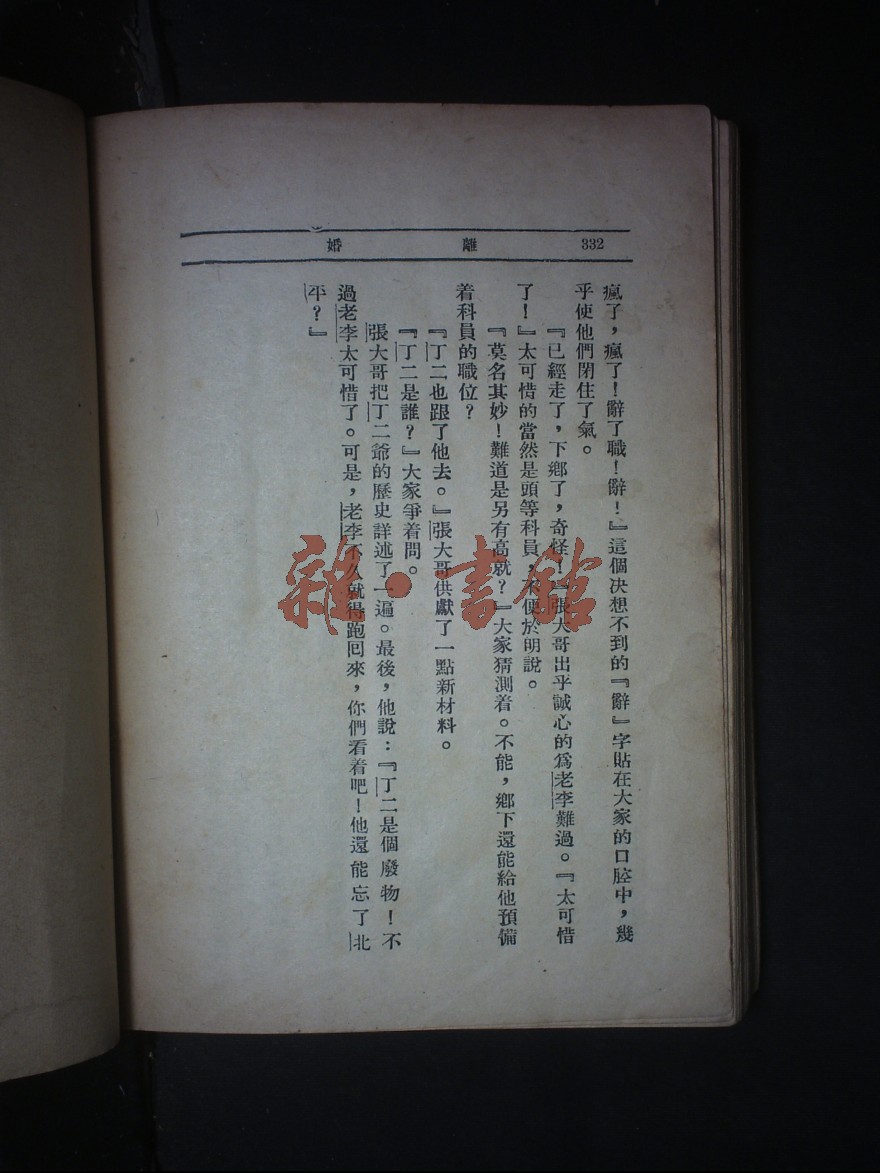 332 離婚
瘋了，瘋了！辭了職！辭！』這個决想不到的『辭』字貼在大家的口腔中，幾
乎使他們閉住了氣。
『已經走了，下鄉了，奇怪！』張大哥出乎誠心的爲老李難過。『太可惜
了！』太可惜的當然是頭等科員，不便於明說。
『莫名其妙！難道是另有高就？』大家猜測着。不能，鄉下還能給他預備
着科員的職位？
『丁二也跟了他去。』張大哥供獻了一點新材料。
『丁二是誰？』大家爭着問。
張大哥把丁二爺的歷史詳述了一遍。最後，他說：『丁二是個廢物！不
過老李太可惜了。可是，老李不久就得跑回來，你們看着吧！他還能忘了北
平？』
雜·書館